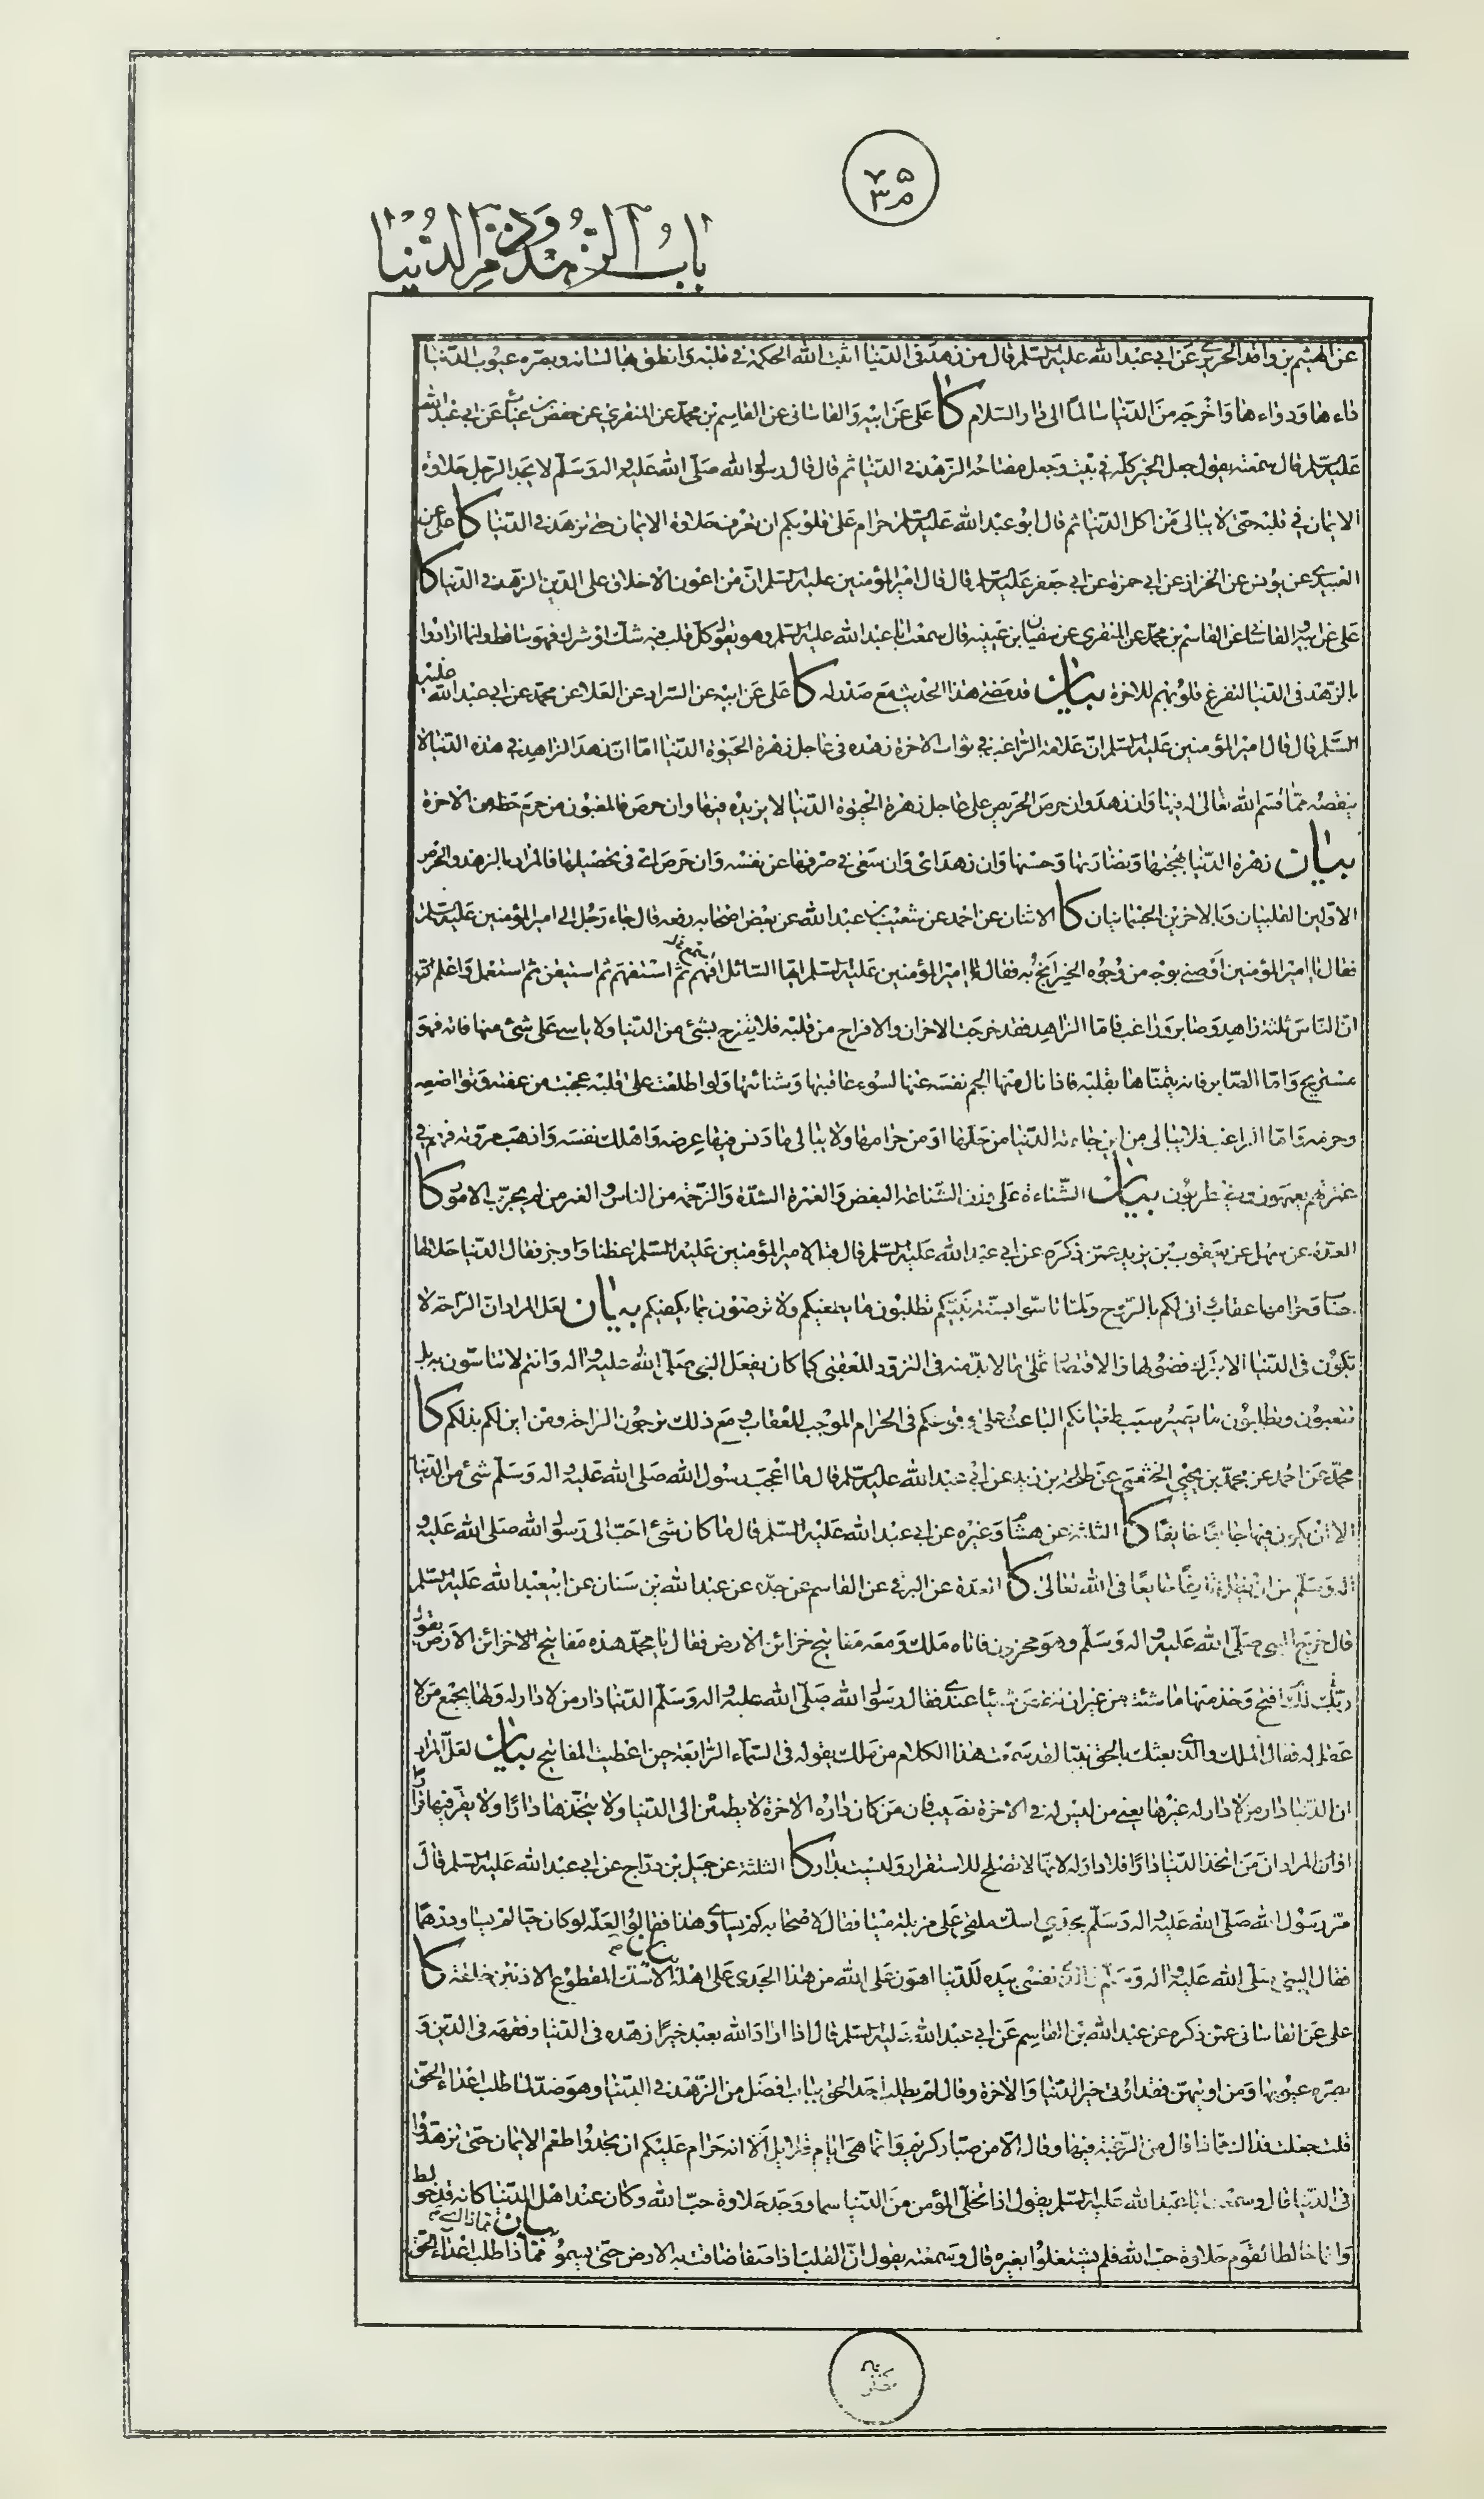 ٧٥
م٣
باب الزهد وذم الدنيا
عن الهيثم بن واقد الحريري عن ابي عبد الله عليه السلم قال من زهد في الدنيا اثبت الله الحكمة في قلبه وانطق بها لسانه وبصره عيوب الدنيا
داءها ودواءها واخرجه من الدنيا سالما الى دار السلام كا علي عن ابيه والقاساني عن القاسم بن محمد عن المنقري عن حفص بن غياث عن ابي عبد الله
عليه السلم قال سمعته يقول جعل الخير كله في بيت وجعل مفتاحه الزهد في الدنيا ثم قال قال رسول الله صلى الله عليه واله وسلم لا يجد الرجل حلاوة
الايمان في قلبه حتى لا يبالي من اكل الدنيا ثم قال ابو عبد الله عليه السلم حرام على قلوبكم ان تعرف حلاوة الايمان حتى تزهد في الدنيا كا علي عن
العبيدي عن يونس عن الخراز عن ابي حمزة عن ابي جعفر عليه السلم قال قال امير المؤمنين عليه السلم ان من اعون الاخلاق على الدين الزهد في الدنيا كا
علي عن ابيه والقاساني عن القاسم بن محمد عن المنقري عن سفيان بن عيينه قال سمعت ابا عبد الله عليه السلم وهو يقول كل قلب فيه شك او شرك فهو ساقط وانما ارادوا
بالزهد في الدنيا لتفرغ قلوبهم للاخرة بيان قد مضى هذا الحديث مع صدر له كا علي عن ابيه عن السراد عن العلا عن محمد عن ابي عبد الله عليه
السلم قال قال امير المؤمنين عليه السلم ان علامة الراغب في ثواب الاخرة زهده في عاجل زهرة الحيوة الدنيا اما ان زهد الزاهد في هذه الدنيا لا
ينقصه مما قسم الله تعالى له فيها وان زهد وان حرص الحريص على عاجل زهرة الحيوة الدنيا لا يزيده فيها وان حرص فالمغبون من حرم حظه من الاخرة
بيان زهرة الدنيا بهجتها ونضارتها وحسنها وان زهد اي وان سعى في صرفها عن نفسه وان حرص اي في تحصيلها فالمراد بالزهد والحرص
الاولين القلبيان وبالاخرين الجسمانيان كا الاثنان عن احمد عن شعيب بن عبد الله عن بعض اصحابه رفعه قال جاء رجل الى امير المؤمنين عليه السلم
فقال يا امير المؤمنين اوصني بوجه من وجوه الخير انج به فقال امير المؤمنين عليه السلم ايها السائل افهم ثم استفهم ثم استيقن ثم استعمل واعلم
ان الناس ثلثة زاهد وصابر وراغب فاما الزاهد فقد خرجت الاحزان والافراح من قلبه فلا يفرح بشئ من الدنيا ولا ياسى على شئ منها فاته فهو
مستريح واما الصابر فانه يتمناها بقلبه فاذا نال منها الجم نفسه عنها لسوء عاقبتها وشنائتها ولو اطلعت على قلبه عجبت من عفته وتواضعه
وحزمه واما الراغب فلا يبالي من اين جاءته الدنيا من حلها او من حرامها ولا يبالي ما دنس فيها عرضه واهلك نفسه واذهب مروته فهم في
غمرتهم يعمهون ويضطربون بيان الشناءة على وزن الشناعة البغض والغمرة الشدة والزحمة من الناس والغمر من لم يجرب الامور كا
العدة عن سهل عن يعقوب بن يزيد عمن ذكره عن ابي عبد الله عليه السلم قال قيل لامير المؤمنين عليه السلم عظنا واوجز فقال الدنيا حلالها
حساب وحرامها عقاب واني لكم بالروح ولما تاسوا بسنة نبيكم تطلبون ما يطغيكم ولا ترضون بما يكفيكم بيان لعل المراد ان الراحة لا
تكون في الدنيا الا بترك فضولها والاقتصار على ما لا بد منه في التزود للعقبى كما كان يفعل النبي صلى الله عليه واله وانتم لا تتاسون به بل
تتعبون وتطلبون ما يصير سبب طغيانكم الباعث على وقوعكم في الحرام الموجب للعقاب ومع ذلك ترجون الراحة ومن اين لكم بذلكم كا
محمد عن احمد عن محمد بن يحيى الخثعمي عن طلحة بن زيد عن ابي عبد الله عليه السلم قال ما اعجب رسول الله صلى الله عليه واله وسلم شئ من الدنيا
الا ان يكون فيها جايعا خايفا كا الثلثة عن هشام وغيره عن ابي عبد الله عليه السلم قال ما كان شئ احب الى رسول الله صلى الله عليه و
اله وسلم من ان يظل خايفا جايعا في الله تعالى كا العدة عن البرقي عن القاسم عن جده عن عبد الله بن سنان عن ابي عبد الله عليه السلم
قال خرج النبي صلى الله عليه واله وسلم وهو محزون فاتاه ملك ومعه مفاتيح خزائن الارض فقال يا محمد هذه مفاتيح خزائن الارض يقول
ربك لك افتح وخذ منها ما شئت من غير ان تنقص شيئا عندي فقال رسول الله صلى الله عليه واله وسلم الدنيا دار من لا دار له ولها يجمع من لا
عقل له فقال الملك والذي بعثك بالحق نبيا لقد سمعت هذا الكلام من ملك يقوله في السماء الرابعة حين اعطيت المفاتيح بيان لعل المراد
ان الدنيا دار من لا دار له غيرها يعني من ليس له في الاخرة نصيب فان من كان داره الاخرة لا يطمئن الى الدنيا ولا يتخذها دارا ولا يقر فيها قرارا
او ان المراد ان من اتخذ الدنيا دارا فلا دار له لانها لا تصلح للاستقرار وليست بدار كا الثلثة عن جميل بن دراج عن ابي عبد الله عليه السلم قال
مر رسول الله صلى الله عليه واله وسلم بجدي اسك ملقى على مزبلة ميتا فقال لاصحابه كم يساوي هذا فقالوا لعله لو كان حيا لم يساو درهما
فقال النبي صلى الله عليه واله وسلم والذي نفسي بيده للدنيا اهون على الله من هذا الجدي على اهله الاسك المقطوع الاذنين خلقة كا
علي عن القاساني عمن ذكره عن عبد الله بن القاسم عن ابي عبد الله عليه السلم قال اذا اراد الله بعبد خيرا زهده في الدنيا وفقهه في الدين و
بصره عيوبها ومن اوتيهن فقد اوتي خير الدنيا والاخرة وقال لم يطلب احد الحق بباب افضل من الزهد في الدنيا وهو ضد لما طلب اعداء الحق
قلت جعلت فداك مما ذا قال من الرغبة فيها وقال الا من صبار كريم وانما هي ايام قلائل الا انه حرام عليكم ان تجدوا طعم الايمان حتى تزهدوا
في الدنيا قال وسمعت ابا عبد الله عليه السلم يقول اذا تخلى المؤمن من الدنيا سما ووجد حلاوة حب الله وكان عند اهل الدنيا كانه قد خولط
وانما خالط القوم حلاوة حب الله فلم يشتغلوا بغيره قال وسمعته يقول ان القلب اذا صفا ضاقت به الارض حتى يسمو بيان مما ذا طلب اعداء الحق